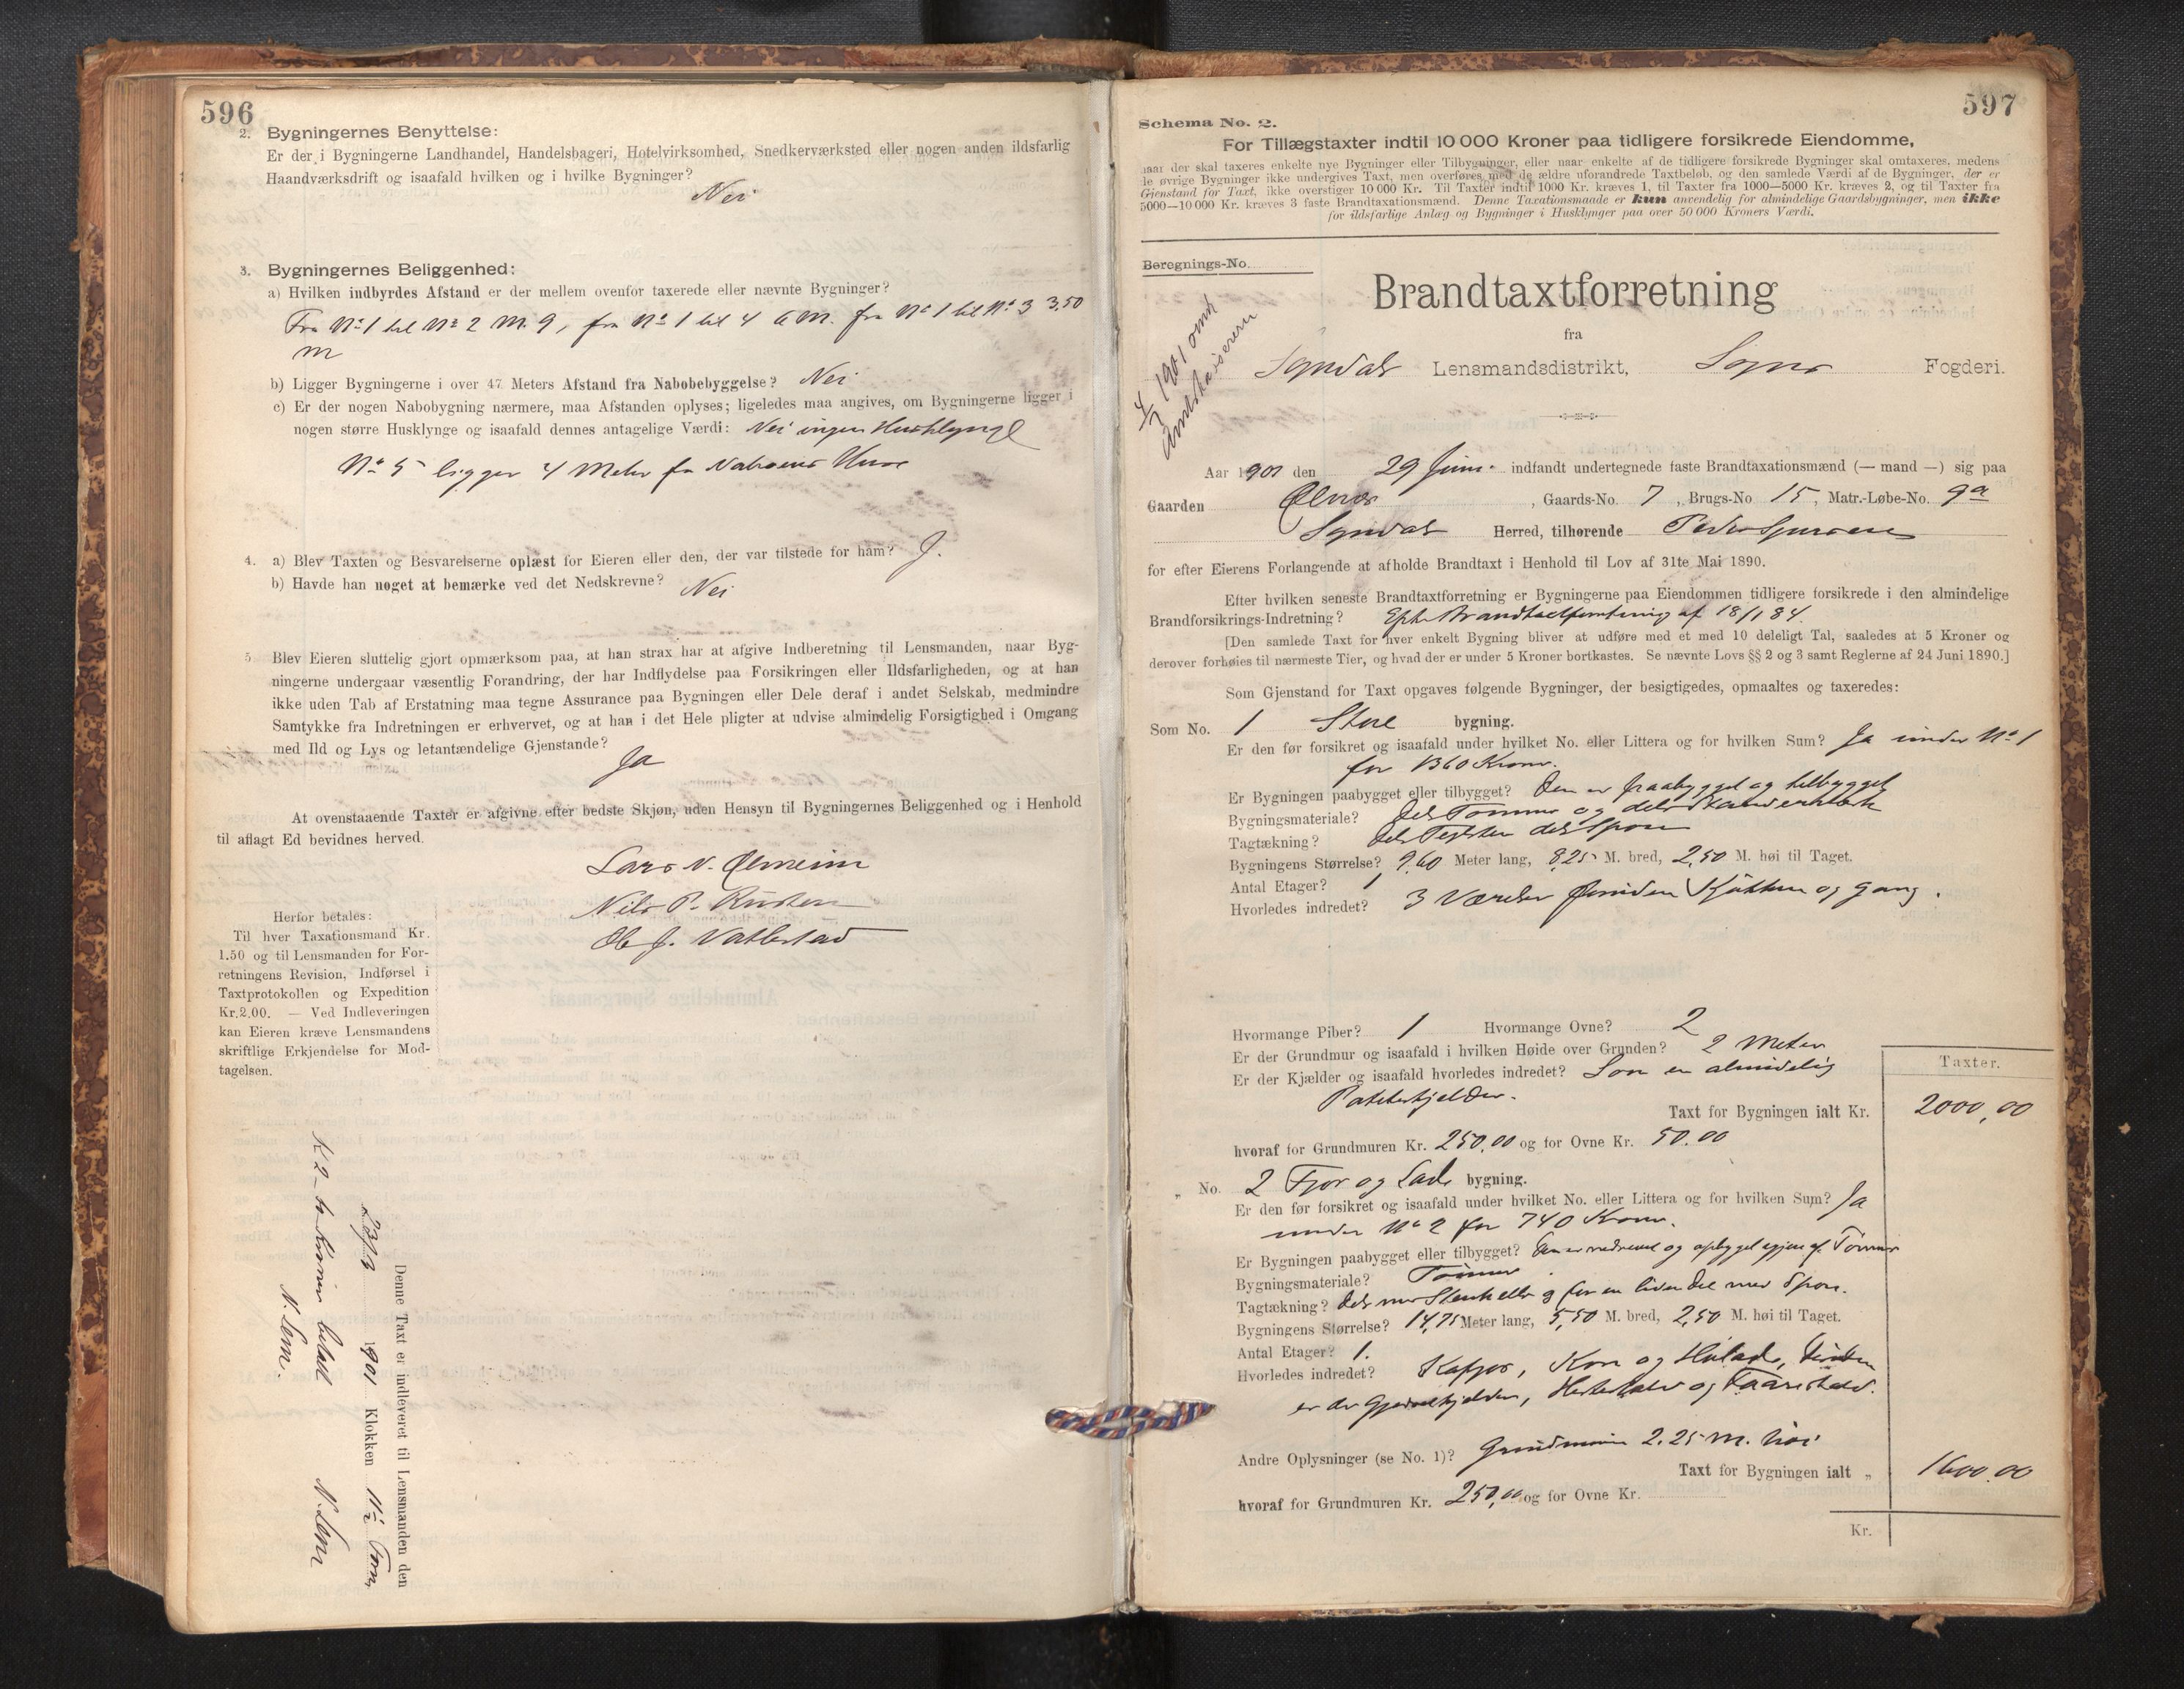 596
2. Bygningernes Benyttelse:
Er der i Bygningerne Landhandel, Handelsbageri, Hotelvirksomhed, Snedkerværksted eller nogen anden ildsfarlig
Haandværksdrift og isaafald hvilken og i hvilke Bygninger?
Nei
3. Bygningernes Beliggenhed:
a) Hvilken indbyrdes Afstand er der mellem ovenfor taxerede eller nævnte Bygninger?
Fra No 1 til No 2 M. 9, fra No 1 til 4 6 M. fra No 1 til No 3 3,50
m
b) Ligger Bygningerne i over 47 Meters Afstand fra Nabobebyggelse? Nei
c) Er der nogen Nabobygning nærmere, maa Afstanden oplyses; ligeledes maa angives, om Bygningerne ligger i
nogen større Husklynge og isaafald dennes antagelige Værdi: Nei ingen Husklynge
No 5 ligger 4 Meter fra Naboens Huse
4. a) Blev Taxten og Besvarelserne oplæst for Eieren eller den, der var tilstede for ham? J.
b) Havde han noget at bemærke ved det Nedskrevne? Nei
5 Blev Eieren sluttelig gjort opmærksom paa, at han strax har at afgive Indberetning til Lensmanden, naar Byg-
ningerne undergaar væsentlig Forandring, der har Indflydelse paa Forsikringen eller Ildsfarligheden, og at han
ikke uden Tab af Erstatning maa tegne Assurance paa Bygningen eller Dele deraf i andet Selskab, medmindre
Samtykke fra Indretningen er erhvervet, og at han i det Hele pligter at udvise almindelig Forsigtighed i Omgang
med Ild og Lys og letantændelige Gjenstande?
Ja
At ovenstaaende Taxter er afgivne efter bedste Skjøn, uden Hensyn til Bygningernes Beliggenhed og i Henhold
til aflagt Ed bevidnes herved.
Lars N.
Nils P.
Ole J. Vatlestad
Herfor betales:
Til hver Taxationsmand Kr.
1.50 og til Lensmanden for For-
retningens Revision, Indførsel i
Taxtprotokollen og Expedition
Kr. 2.00. — Ved Indleveringen
kan Eieren kræve Lensmandens
skriftlige Erkjendelse for Mod-
tagelsen.
Denne Taxt er indleveret til Lensmanden den
1901 Klokken 11½ Form
N. Lem
K 2 - to kroner betalt
N. Lem.
597
Schema No. 2.
For Tillægstaxter indtil 10 000 Kroner paa tidligere forsikrede Eiendomme,
naar der skal taxeres enkelte nye Bygninger eller Tilbygninger, eller naar enkelte af de tidligere forsikrede Bygninger skal omtaxeres, medens
de øvrige Bygninger ikke undergives Taxt, men overføres med de ældre uforandrede Taxtbeløb, og den samlede Værdi af de Bygninger, der er
Gjenstand for Taxt, ikke overstiger 10 000 Kr. Til Taxter indtil 1000 Kr. kræves 1, til Taxter fra 1000—5000 Kr. kræves 2, og til Taxter fra
5000—10 000 Kr. kræves 3 faste Brandtaxationsmænd. Denne Taxationsmaade er kun anvendelig for almindelige Gaardsbygninger, men ikke
for ildsfarlige Anlæg og Bygninger i Husklynger paa over 50 000 Kroners Værdi.
Beregnings-No.
Brandtaxtforretning
fra
Lensmandsdistrikt, Sogns Fogderi.
Aar 1901 den 29 Juni indfandt undertegnede faste Brandtaxationsmænd (— mand —) sig paa
Gaarden , Gaards-No. 7, Brugs-No 15, Matr.-Løbe-No. 9a
Herred, tilhørende
for efter Eierens Forlangende at afholde Brandtaxt i Henhold til Lov af 31te Mai 1890.
Efter hvilken seneste Brandtaxtforretning er Bygningerne paa Eiendommen tidligere forsikrede i den almindelige
Brandforsikrings-Indretning? Efter Brandtaxtforretning af 18/1 84.
[Den samlede Taxt for hver enkelt Bygning bliver at udføre med et med 10 deleligt Tal, saaledes at 5 Kroner og
derover forhøies til nærmeste Tier, og hvad der er under 5 Kroner bortkastes. Se nævnte Lovs §§ 2 og 3 samt Reglerne af 24 Juni 1890.]
Som Gjenstand for Taxt opgaves følgende Bygninger, der besigtigedes, opmaaltes og taxeredes:
Som No. 1 Stue bygning.
Er den før forsikret og isaafald under hvilket No. eller Littera og for hvilken Sum? Ja under No 1
for 1360 Kroner.
Er Bygningen paabygget eller tilbygget? Den er paabygget og tilbygget
Bygningsmateriale? dels Tømmer og dels
Tagtækning? dels Teglsten dels Spon
Bygningens Størrelse? 9,60 Meter lang, 8,25 M. bred, 2,50 M. høi til Taget.
Antal Etager? 1
Hvorledes indredet? 3 Værelser foruden Kjøkken og Gang.
Hvormange Piber? 1 Hvormange Ovne? 2
Er der Grundmur og isaafald i hvilken Høide over Grunden? 2 Meter
Er der Kjælder og isaafald hvorledes indredet? Som en almindelig
Potetkjelder.
Taxter.
Taxt for Bygningen ialt Kr. 2000,00
hvoraf for Grundmuren Kr. 250,00 og for Ovne Kr. 50.00
„ No. 2 Fjøs og Lade bygning.
Er den før forsikret og isaafald under hvilket No. eller Littera og for hvilken Sum? Ja
under No 2 for 740 Kroner.
Er Bygningen paabygget eller tilbygget? Den er nedrevet og opbygget igjen af Tømmer
Bygningsmateriale? Tømmer
Tagtækning? dels med Stenheller og for en liden del med Spon.
Bygningens Størrelse? 14,75 Meter lang, 5,50 M. bred, 2,50 M. høi til Taget.
Antal Etager? 1.
Hvorledes indredet? Kofjøs, Korn og Hølade,
er der Gjødselkjelder, Hestestald og Faarestald.
Andre Oplysninger (se No. 1)? Grundmuren 2.25 M. høi
Taxt for Bygningen ialt „ 1600.00
hvoraf for Grundmuren Kr. 250,00 og for Ovne Kr.
Kr.